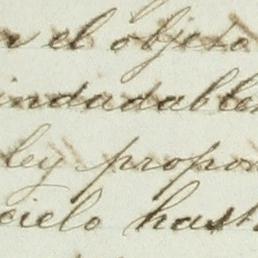 r el objeto
indadables
ley propon
cielo hast